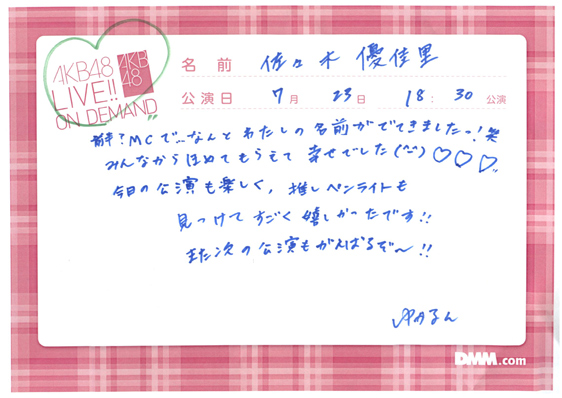 AKB48
LIVE!!
ON DEMAND
AKB
48
名前 佐々木 優佳里
公演日 7月 23日 18:30 公演
MCで…なんとわたしの名前がでてきましたっ!笑
みんなからほめてもらえて 幸せでした(^^)♡♡♡
今日の公演も楽しく、推しペンライトも
見つけてすごく嬉しかったです!!
また次の公演もがんばるぞ〜!!
DMM.com